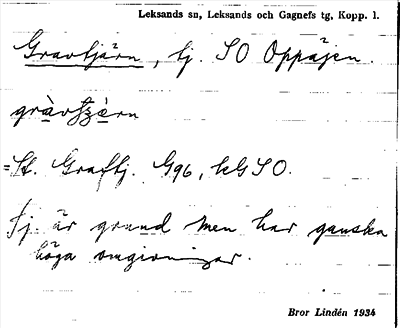 Leksands sn, Leksands och Gagnefs tg, Kopp. l.
Gravtjärn, tj. SO Oppåjen.
gràvtʒæ̀rn
=St. Graftj. G96, kGSO.
Tj. är grund men har ganska
höga omgivningar.
Bror Lindén 1934